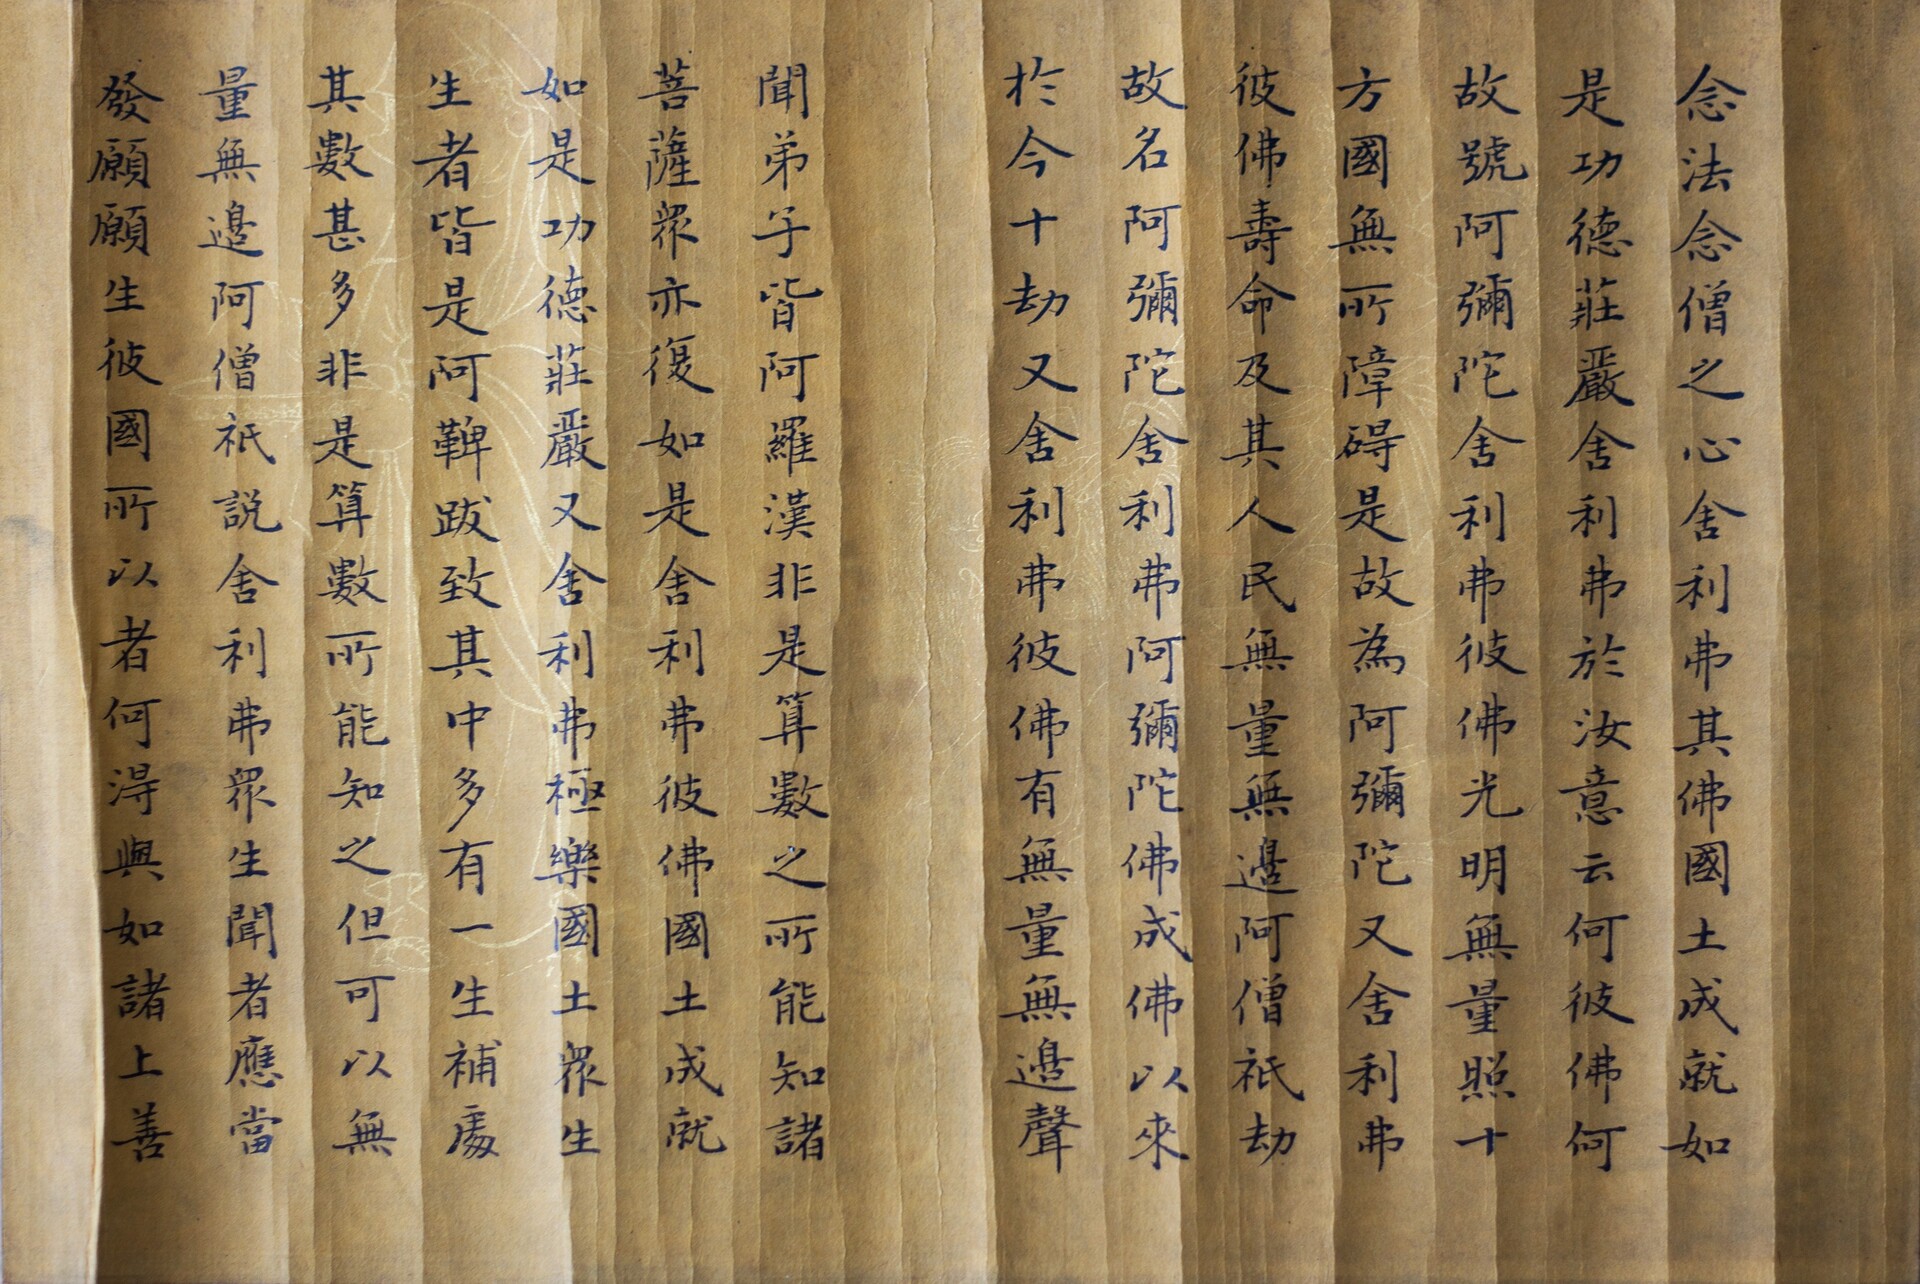 念法念僧之心舍利弗其佛國土成就如
是功德莊嚴舍利弗於汝意云何彼佛何
故號阿彌陀舍利弗彼佛光明無量照十
方國無所障碍是故為阿彌陀又舍利弗
彼佛壽命及其人民無量無邊阿僧祇劫
故名阿彌陀舍利弗阿彌陀佛成佛以來
於今十劫又舍利弗彼佛有無量無邊聲
聞弟子皆阿羅漢非是算數之所能知諸
菩薩眾亦復如是舍利弗彼佛國土成就
如是功德莊嚴又舍利弗極樂國土眾生
生者皆是阿鞞跋致其中多有一生補處
其數甚多非是算數所能知之但可以無
量無邊阿僧祇說舍利弗眾生聞者應當
發願願生彼國所以者何得與如諸上善